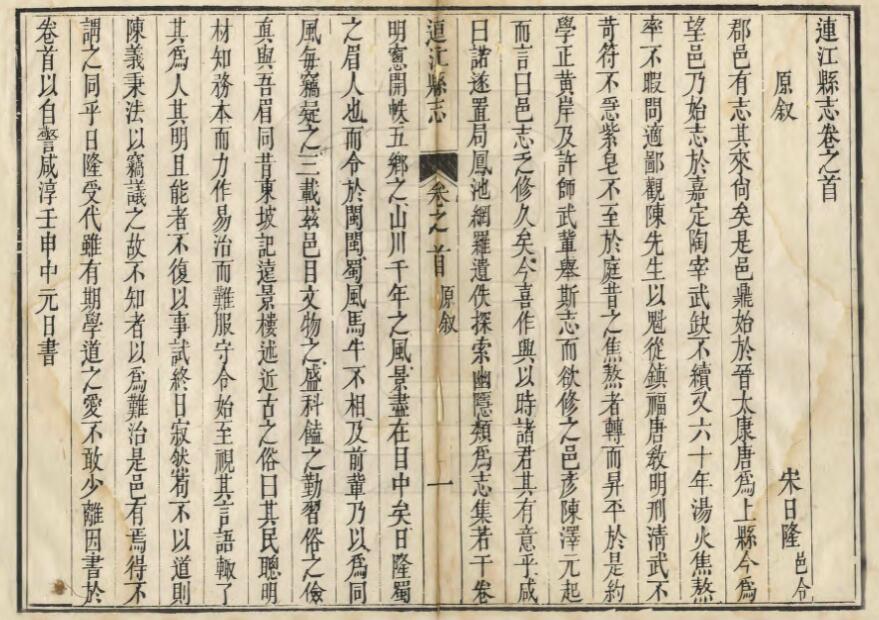 連江縣志卷之首
原叙
宋日隆邑令
郡邑有志其來尙矣是邑鼎始於晉太康唐爲上縣今爲
望邑乃始志於嘉定陶宰武缺不續又六十年湯火焦熬
率不暇問適鄙觀陳先生以魁從鎮福唐敎明刑清武不
苛符不急紫皂不至於庭昔之焦熬者轉而昇平於是約
學正黄岸及許師武軰舉斯志而欲修之邑彥陳澤元起
而言曰邑志乏修久矣今喜作興以時諸君其有意乎咸
曰諾遂置局鳳池網羅遺佚探索幽隱類爲志集若干卷
連江縣志
卷之首
原叙
一
明窻開帙五鄉之山川千年之風景盡在目中矣日隆蜀
之眉人也而令於閩閩蜀風馬牛不相及前軰乃以爲同
風每竊疑之三載茲邑目文物之盛科䭫之勤習俗之儉
眞與吾眉同昔東坡記遠景樓述近古之俗曰其民聰明
材知務本而力作易治而難服守令始至視其言語輙了
其爲人其明且能者不復以事試終日寂然苟不以道則
陳義秉法以竊議之故不知者以爲難治是邑有焉得不
謂之同乎日隆受代雖有期學道之愛不敢少離因書於
卷首以自警咸淳壬申中元日書